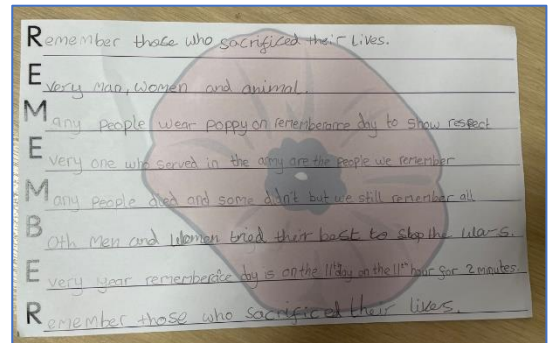 Remember those who sacrificed their lives.
Every man, women and animal.
Many people wear poppy on rememberance day to show respect
Every one who served in the army are the people we remember
Many people died and some didn't but we still remember all
Both men and women tried their best to stop the wars.
Every year rememberce day is on the 11th day on the 11th hour for 2 minutes.
Remember those who sacrificed their lives.